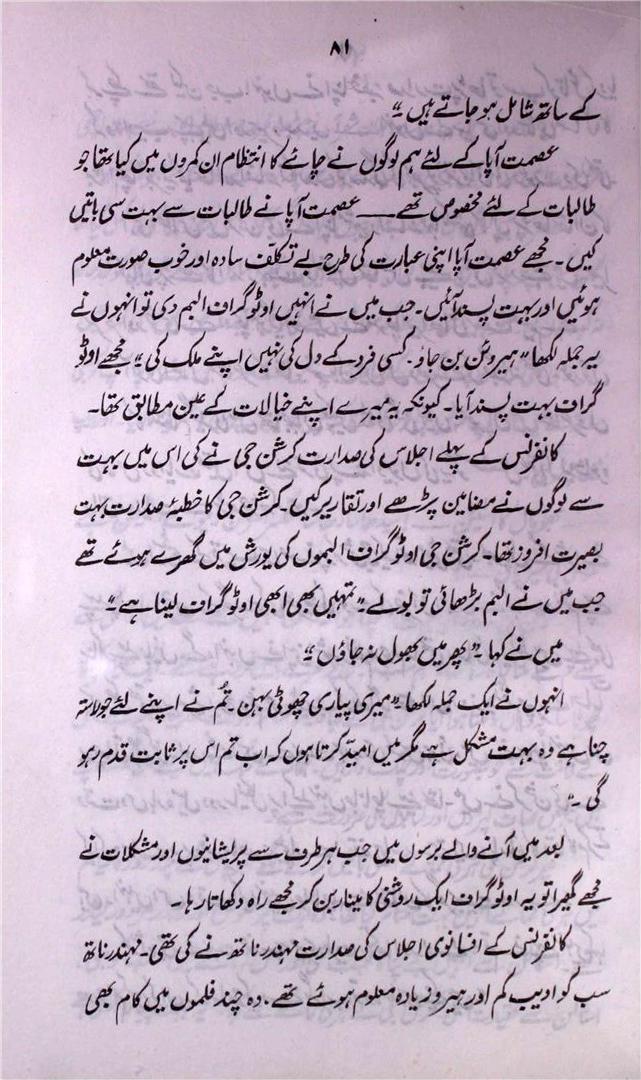 ۸۱
کے ساتھ شامل ہو جاتے ہیں۔"
عصمت آپا کے لئے ہم لوگوں نے چائے کا انتظام ان کمروں میں کیا تھا جو
طالبات کے لئے مخصوص تھے ــــ عصمت آپا نے طالبات سے بہت سی باتیں
کیں۔ مجھے عصمت آپا اپنی عبارت کی طرح بے تکلّف سادہ اور خوب صورت معلوم
ہوئیں اور بہت پسند آئیں۔ جب میں نے انہیں اوٹو گراف البم دی تو انہوں نے
یہ جملہ لکھا "ہیروئن بن جاؤ۔ کسی فرد کے دل کی نہیں اپنے ملک کی" مجھے اوٹو
گراف بہت پسند آیا۔ کیونکہ یہ میرے اپنے خیالات کے عین مطابق تھا۔
کانفرنس کے پہلے اجلاس کی صدارت کرشن جی نے کی اس میں بہت
سے لوگوں نے مضامین پڑھے اور تقاریر کیں۔ کرشن جی کا خطبۂ صدارت بہت
بصیرت افروز تھا۔ کرشن جی اوٹو گراف البموں کی یورش میں گھرے ہوئے تھے
جب میں نے البم بڑھائی تو بولے "تمہیں بھی ابھی اوٹو گراف لینا ہے"
میں نے کہا۔ "پھر میں بھول نہ جاؤں"
انہوں نے ایک جملہ لکھا "میری پیاری چھوٹی بہن۔ تُم نے اپنے لئے جو راستہ
چنا ہے وہ بہت مشکل ہے مگر میں امیدّ کرتا ہوں کہ اب تم اس پر ثابت قدم رہو
گی۔"
بعد میں آنے والے برسوں میں جب ہر طرف سے پریشانیوں اور مشکلات نے
مجھے گھیرا تو یہ اوٹو گراف ایک روشنی کا مینار بن کر مجھے راہ دکھاتا رہا۔
کانفرنس کے افسانوی اجلاس کی صدارت مہندر ناتھ نے کی تھی۔ مہندر ناتھ
سب کو ادیب کم اور ہیرو زیادہ معلوم ہوئے تھے۔ وہ چند فلموں میں کام بھی